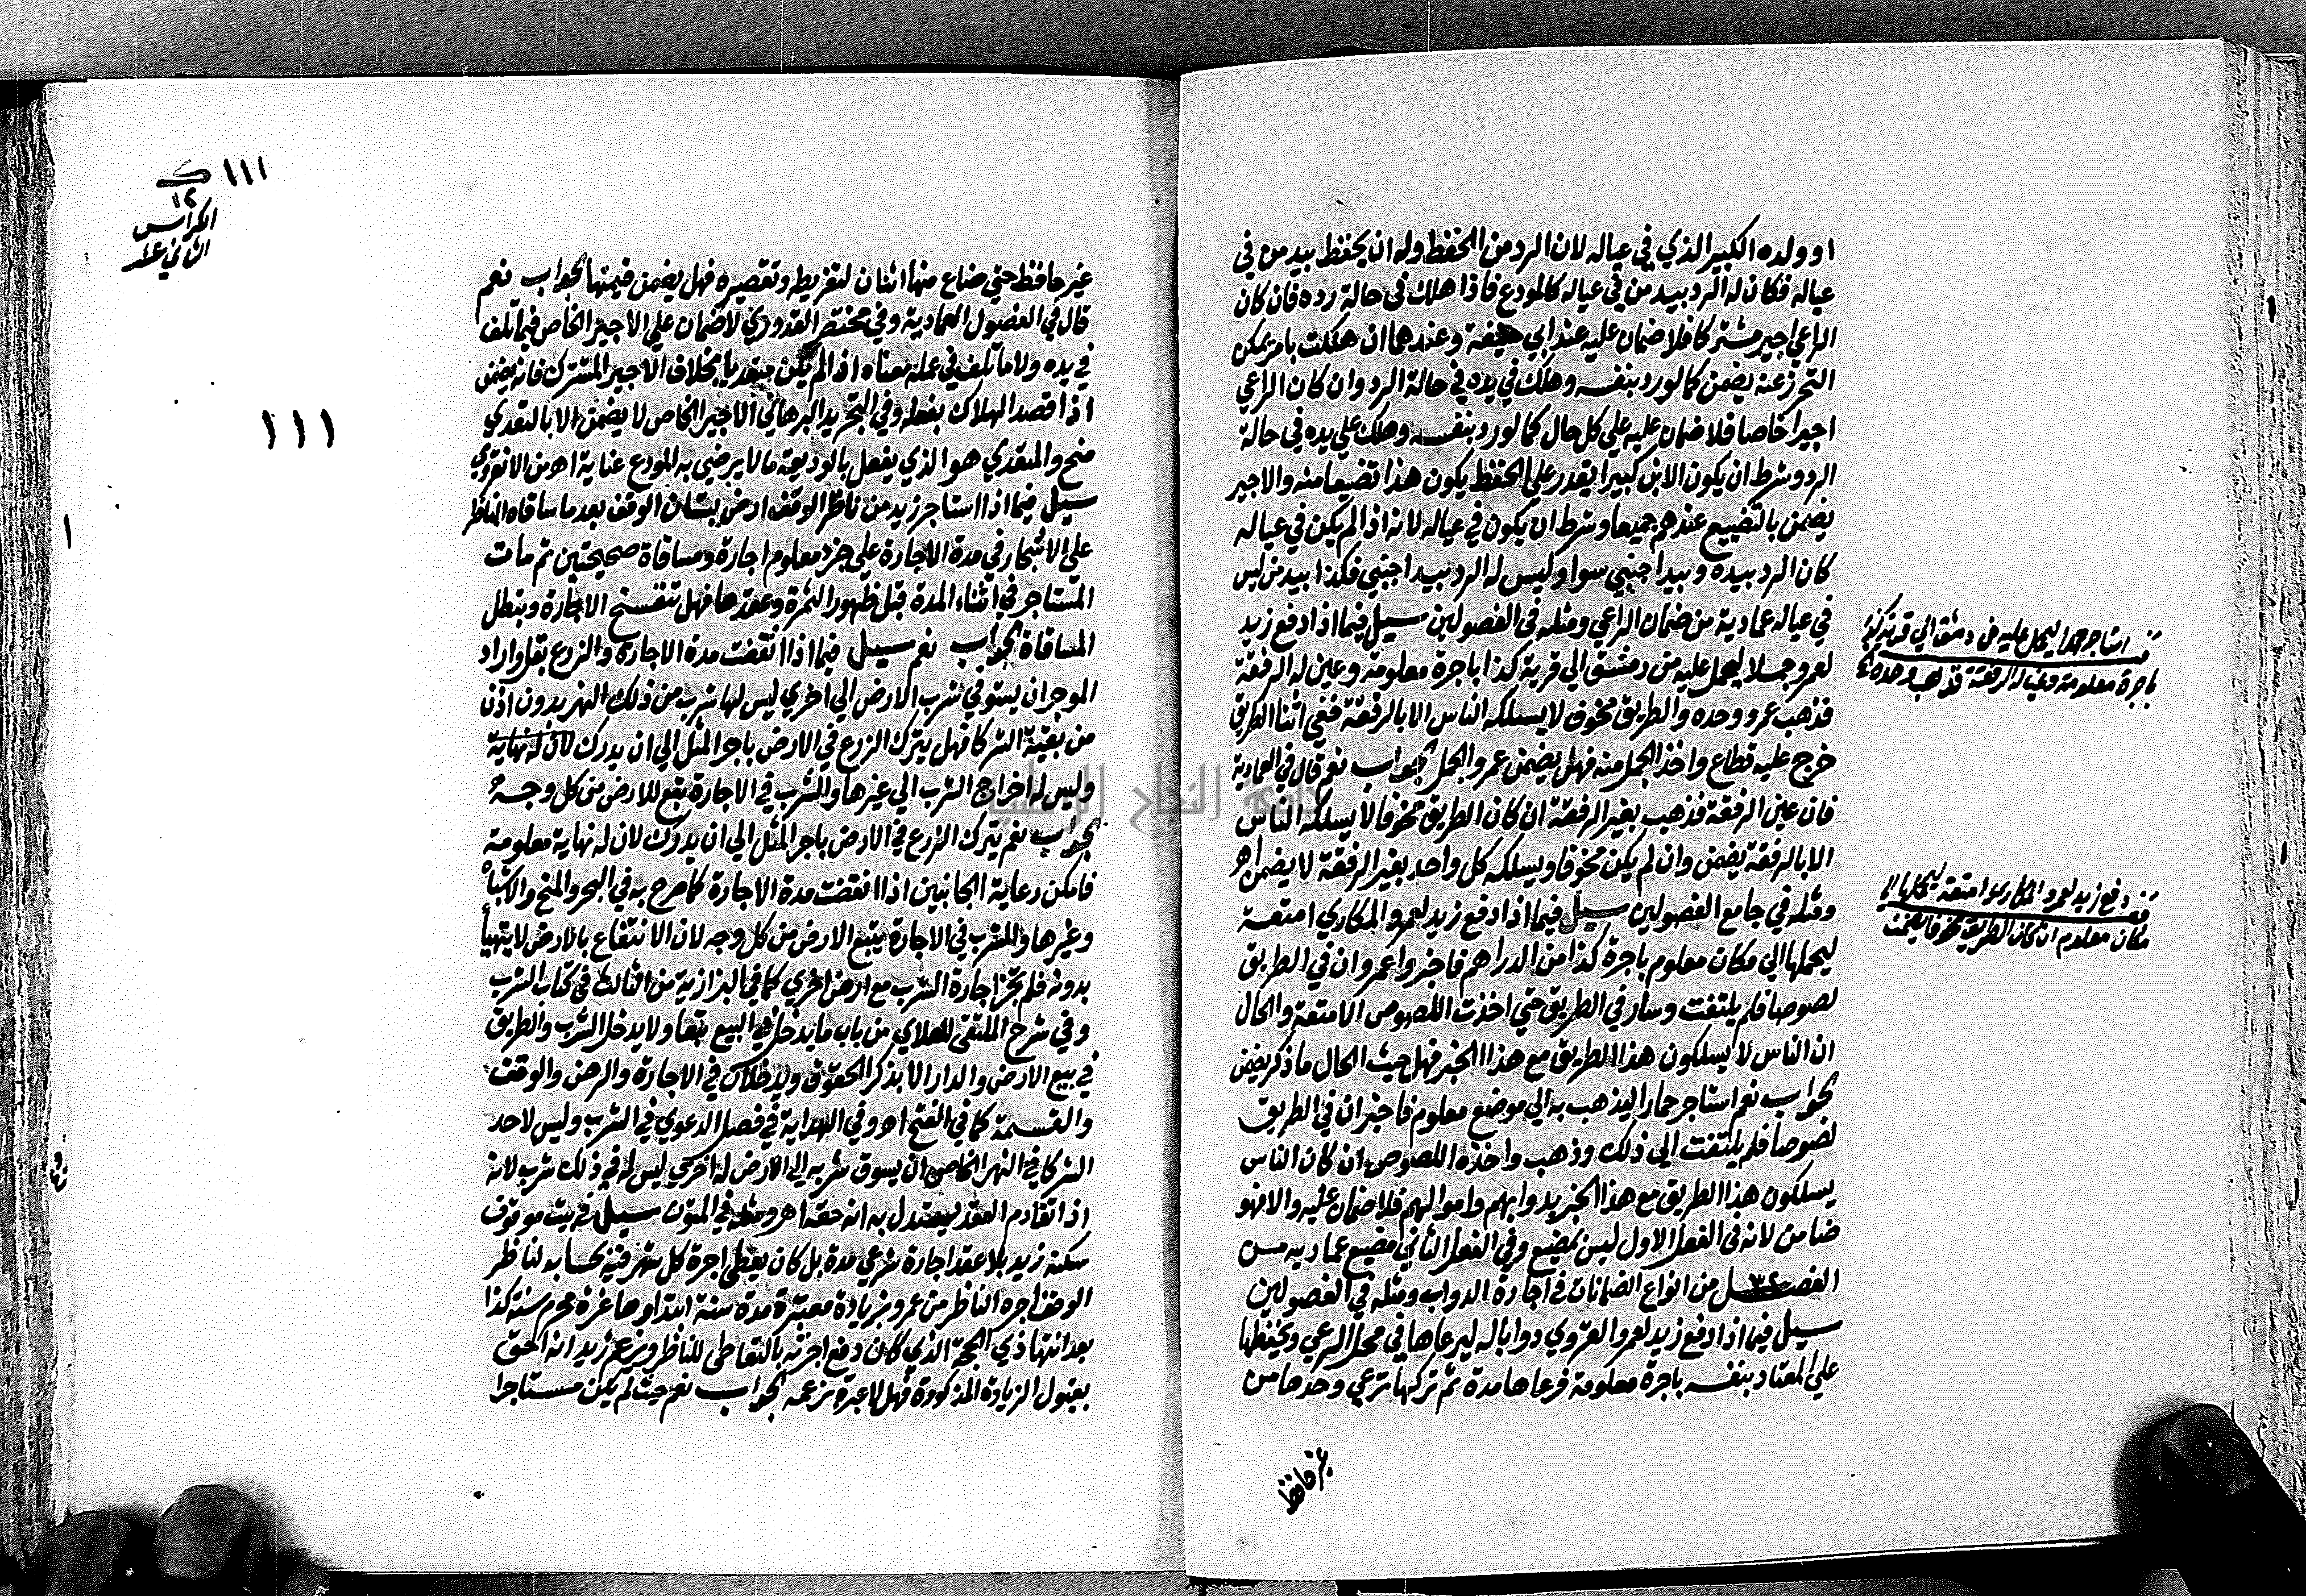 او ولده الكبير الذي في عياله لان الرد من الحفظ وله ان يحفظ بيد من في
عياله فكان له الرد بيد من في عياله كالمودع فاذا هلك في حالة رده فان كان
الراعي اجير مشتركا فلا ضمان عليه عند ابي حنيفة وعندهما ان هلكت بامر يمكن
التحرز عنه يضمن كما لو رد بنفسه وهلك في يده في حالة الرد وان كان الراعي
اجيرا خاصا فلا ضمان عليه علي كل حال كما لو رد بنفسه وهلك علي يده في حالة
الرد وشرط ان يكون الابن كبيرا يقدر علي الحفظ يكون هذا تضييعا منه والاجير
يضمن بالتضييع عندهم جميعا وشرط ان يكون في عياله لانه اذا لم يكن في عياله
كان الرد بيده وبيد اجنبي سوا وليس له الرد بيد اجنبي فكذا بيد من ليس
في عياله عمادية من ضمان الراعي ومثله في الفصولين سيل فيما اذا دفع زيد
لعمرو جملا ليحمل عليه من دمشق الي قرية كذا باجرة معلومة وعين له الرفقة
فذهب عمرو وحده والطريق مخوف لا يسلكه الناس الا بالرفقة ففي اثنا الطريق
خرج عليه قطاع واخذ الجمل منه فهل يضمن عمرو الجمل الجواب نعم قال في العمادية
فان عين الرفقة فذهب بغير الرفقة ان كان الطريق مخوفا لا يسلكه الناس
الا بالرفقة يضمن وان لم يكن مخوفا ويسلكه كل واحد بغير الرفقة لا يضمن اهـ
ومثله في جامع الفصولين سيل فيما اذا دفع زيد لعمرو المكاري امتعة
ليحملها الي مكان معلوم باجرة كذا من الدراهم فاخبروا عمرو ان في الطريق
لصوصا فلم يلتفت وسار في الطريق حتي اخذت اللصوص الامتعة والحال
ان الناس لا يسلكون هذا الطريق مع هذا الخبر فهل حيث الحال ما ذكر يضمن
الجواب نعم استاجر حمارا ليذهب به الي موضع معلوم فاخبر ان في الطريق
لصوصا فلم يلتفت الي ذلك وذهب واخذه اللصوص ان كان الناس
يسلكون هذا الطريق مع هذا الخبر بدوابهم واموالهم فلا ضمان عليه والا فهو
ضامن لانه في الفصل الاول ليس بمضيع وفي الفصل الثاني مضيع عماديه من
الفصل ٣٢ من انواع الضمانات في اجارة الدواب ومثله في الفصولين
سيل فيما اذا دفع زيد لعمرو دوابا له ليرعاها في محل الرعي ويحفظها
علي المعتاد بنفسه باجرة معلومة فرعاها مدة ثم تركها ترعي وحدها من
غير حافظ
استاجر جملا ليحمل عليه من دمشق الي قرية كذا
باجرة معلومة وعين له الرفقة فذهب وحده
دفع زيد لعمرو المكاري امتعة ليحملها الي
مكان معلوم ان كان الطريق مخوفا يضمن
١١١
١٢
الكراس
الثاني عشر
١١١
غير حافظ حتي ضاع منها اثنان لتفريطه وتقصيره فهل يضمن قيمتها الجواب نعم
قال في الفصول العمادية وفي مختصر القدوري لا ضمان علي الاجير الخاص فيما تلف
في يده ولا ما تلف في عمله معناه اذا لم يكن متعديا بخلاف الاجير المشترك فانه يضمن
اذا قصد الهلاك بفعله وفي التجريد البرهاني الاجير الخاص لا يضمن الا بالتعدي
منح والمتعدي هو الذي يفعل بالوديعة ما لا يرضي به المودع عناية اهـ من الانقروي
سيل فيما اذا استاجر زيد من ناظر الوقف ارض بستان الوقف بعد ما ساقاه الناظر
علي الاشجار في مدة الاجارة علي جزء معلوم اجارة ومساقاة صحيحتين ثم مات
المستاجر في اثناء المدة قبل ظهور الثمرة وعقدها فهل تنفسخ الاجارة وتبطل
المساقاة الجواب نعم سيل فيما اذا انقضت مدة الاجارة والزرع بقل واراد
الموجر ان يستوفي شرب الارض الي اخري ليس لها شرب من ذلك النهر بدون اذن
من بقية الشركا فهل يترك الزرع في الارض باجر المثل الي ان يدرك لان له نهاية
وليس له اخراج الشرب الي غيرها والشرب في الاجارة تبع للارض من كل وجه
الجواب نعم يترك الزرع في الارض باجر المثل الي ان يدرك لان له نهاية معلومة
فامكن رعاية الجانبين اذا انقضت مدة الاجارة كما صرح به في البحر والمنح والاشباه
وغيرها والشرب في الاجارة يتبع الارض من كل وجه لان الانتفاع بالارض لا يتهيا
بدونه فلم تجز اجارة الشرب مع ارض اخري كما في البزازية من الثالث في كتاب الشرب
وفي شرح الملتقي للعلاي من باب ما يدخل في البيع تبعا ولا يدخل الشرب والطريق
في بيع الارض والدار الا بذكر الحقوق ويدخلان في الاجارة والرهن والوقف
والقسمة كما في الفتح اهـ وفي الهداية في فصل الدعوي في الشرب وليس لاحد
الشركا في النهر الخاص ان يسوق شربه الي الارض له اخري ليس لها في ذلك شرب لانه
اذا تقادم العقد يستدل به انه حقه اهـ ومثله في المتون سيل في بيت موقوف
سكنه زيد بلا عقد اجارة شرعي مدة بل كان يعطي اجرة كل شهر فيه بحسابه لناظر
الوقف اجره الناظر من عمرو بزيادة معتبرة مدة سنة ابتداوها غرة محرم سنة كذا
بعد انتها ذي الحجة الذي كان دفع اجرته بالتعاطي للناظر ويزعم زيد انه احق
بقبول الزيادة المذكورة فهل لا عبرة بزعمه الجواب نعم حيث لم يكن مستاجرا